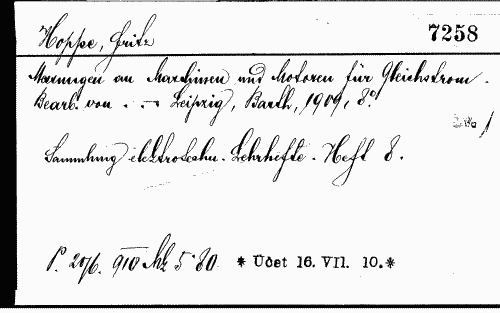 Hoppe, Fritz
7258
Messungen an Maschinen und Motoren für Gleichstrom.
Bearb. von . — Leipzig, Barth, 1909, 8°
Sammlung elektrotechn. Lehrhefte. Heft 8.
P. 2076. 910 Mk 5.80 * Udet 16. VII. 10.*